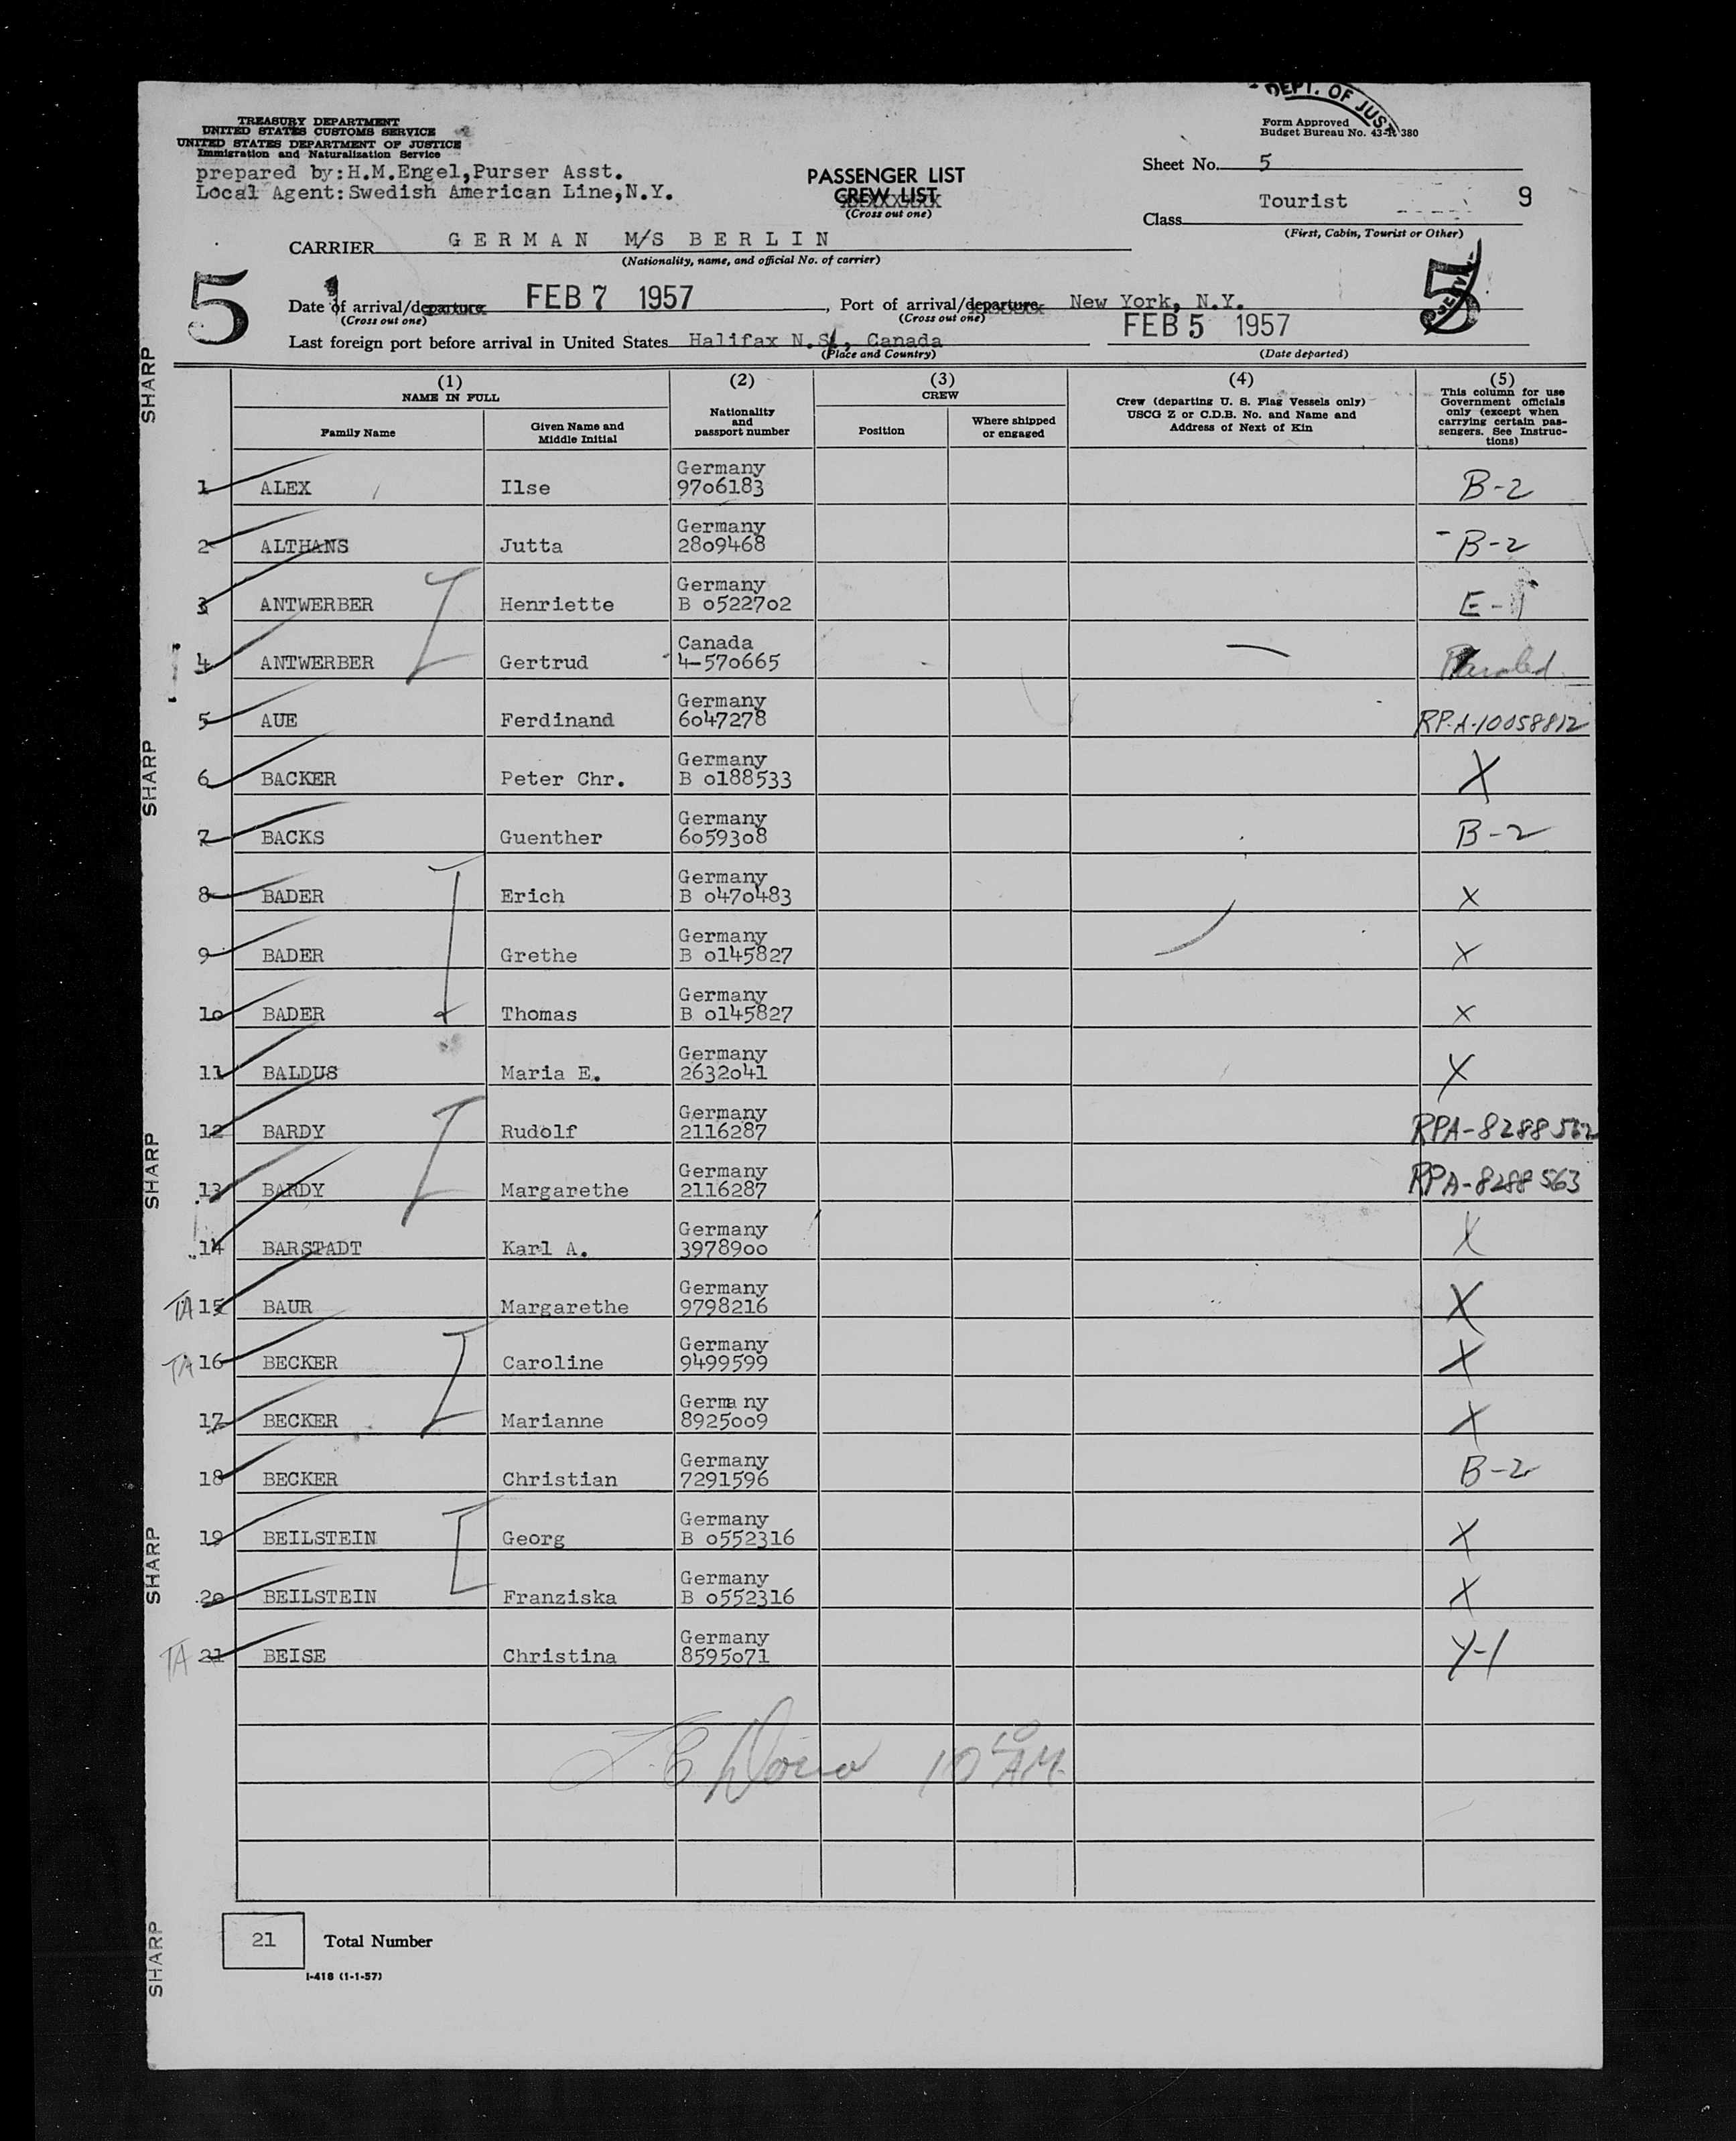 DEPT. OF JUST
TREASURY DEPARTMENT
UNITED STATES CUSTOMS SERVICE
UNITED STATES DEPARTMENT OF JUSTICE
Immigration and Naturalization Service
prepared by:H.M.Engel,Purser Asst.
Local Agent:Swedish American Line,N.Y.
PASSENGER LIST
CREW LIST
(Cross out one)
Form Approved
Budget Bureau No. 43-R 380
Sheet No. 5
Class Tourist 9
(First, Cabin, Tourist or Other)
CARRIER GERMAN M/S BERLIN
(Nationality, name, and official No. of carrier)
5
Date of arrival/departure FEB 7 1957, Port of arrival/departure New York, N.Y.
(Cross out one) (Cross out one)
5
Last foreign port before arrival in United States Halifax N.S., Canada FEB 5 1957
(Place and Country) (Date departed)
(1) (2) (3) (4) (5)
NAME IN FULL
Family Name
Given Name and Middle Initial
Nationality and passport number
CREW
Position
Where shipped or engaged
Crew (departing U. S. Flag Vessels only)
USCG Z or C.D.B. No. and Name and
Address of Next of Kin
This column for use
Government officials
only (except when
carrying certain pas-
sengers. See Instruc-
tions)
1 ALEX Ilse Germany 9706183 B-2
2 ALTHANS Jutta Germany 2809468 B-2
3 ANTWERBER Henriette Germany B 0522702 E-1
4 ANTWERBER Gertrud Canada 4-570665
5 AUE Ferdinand Germany 6047278 RP-A-10058812
6 BACKER Peter Chr. Germany B 0188533 X
7 BACKS Guenther Germany 6059308 B-2
8 BADER Erich Germany B 0470483 X
9 BADER Grethe Germany B 0145827 X
10 BADER Thomas Germany B 0145827 X
11 BALDUS Maria E. Germany 2632041 X
12 BARDY Rudolf Germany 2116287 RPA-8288562
13 BARDY Margarethe Germany 2116287 RPA-8288563
14 BARSTADT Karl A. Germany 3978900 X
TA 15 BAUR Margarethe Germany 9798216 X
TA 16 BECKER Caroline Germany 9499599 X
17 BECKER Marianne Germa ny 8925009 X
18 BECKER Christian Germany 7291596 B-2
19 BEILSTEIN Georg Germany B 0552316 X
20 BEILSTEIN Franziska Germany B 0552316 X
TA 21 BEISE Christina Germany 8595071 Y-1
21 Total Number
I-418 (1-1-57)
SHARP
SHARP
SHARP
SHARP
SHARP